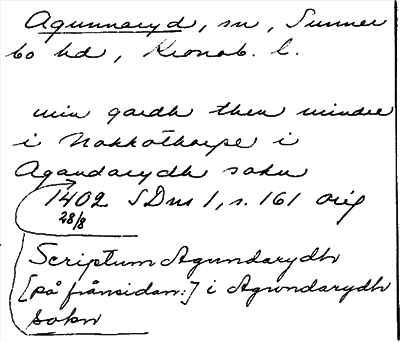 Agunnaryd, sn, Sunner
bo hd, Kronob. l.
min gardh then mindre
i Nokkathorpe i
Agandarydh sokn
1402 SDns 1, s. 161 orig
28/8
Scriptum Agundarydh
[på frånsidan:] i Agwndarydh
sokn